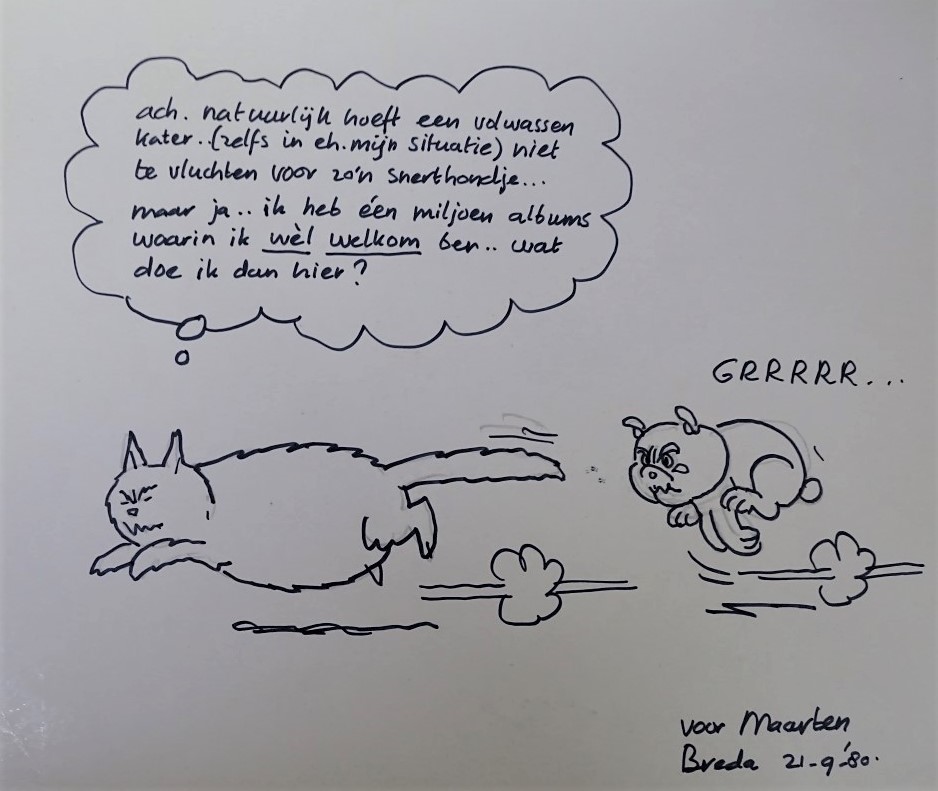 ach. natuurlijk hoeft een volwassen
kater..(zelfs in eh.mijn situatie) niet
te vluchten voor zo'n snerthondje...
maar ja.. ik heb één miljoen albums
waarin ik wèl welkom ben.. wat
doe ik dan hier?
GRRRRR...
voor Maarten
Breda 21-9-'80.